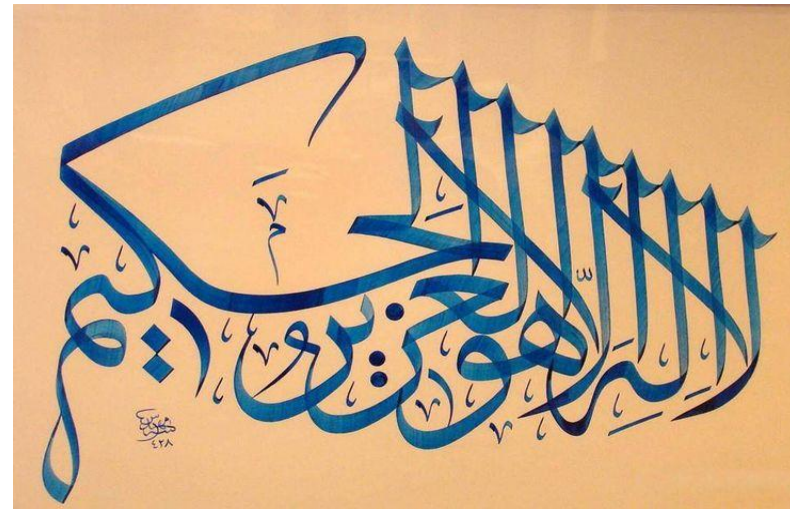 لا اله الا هو العزيز الحكيم
٤٢٨